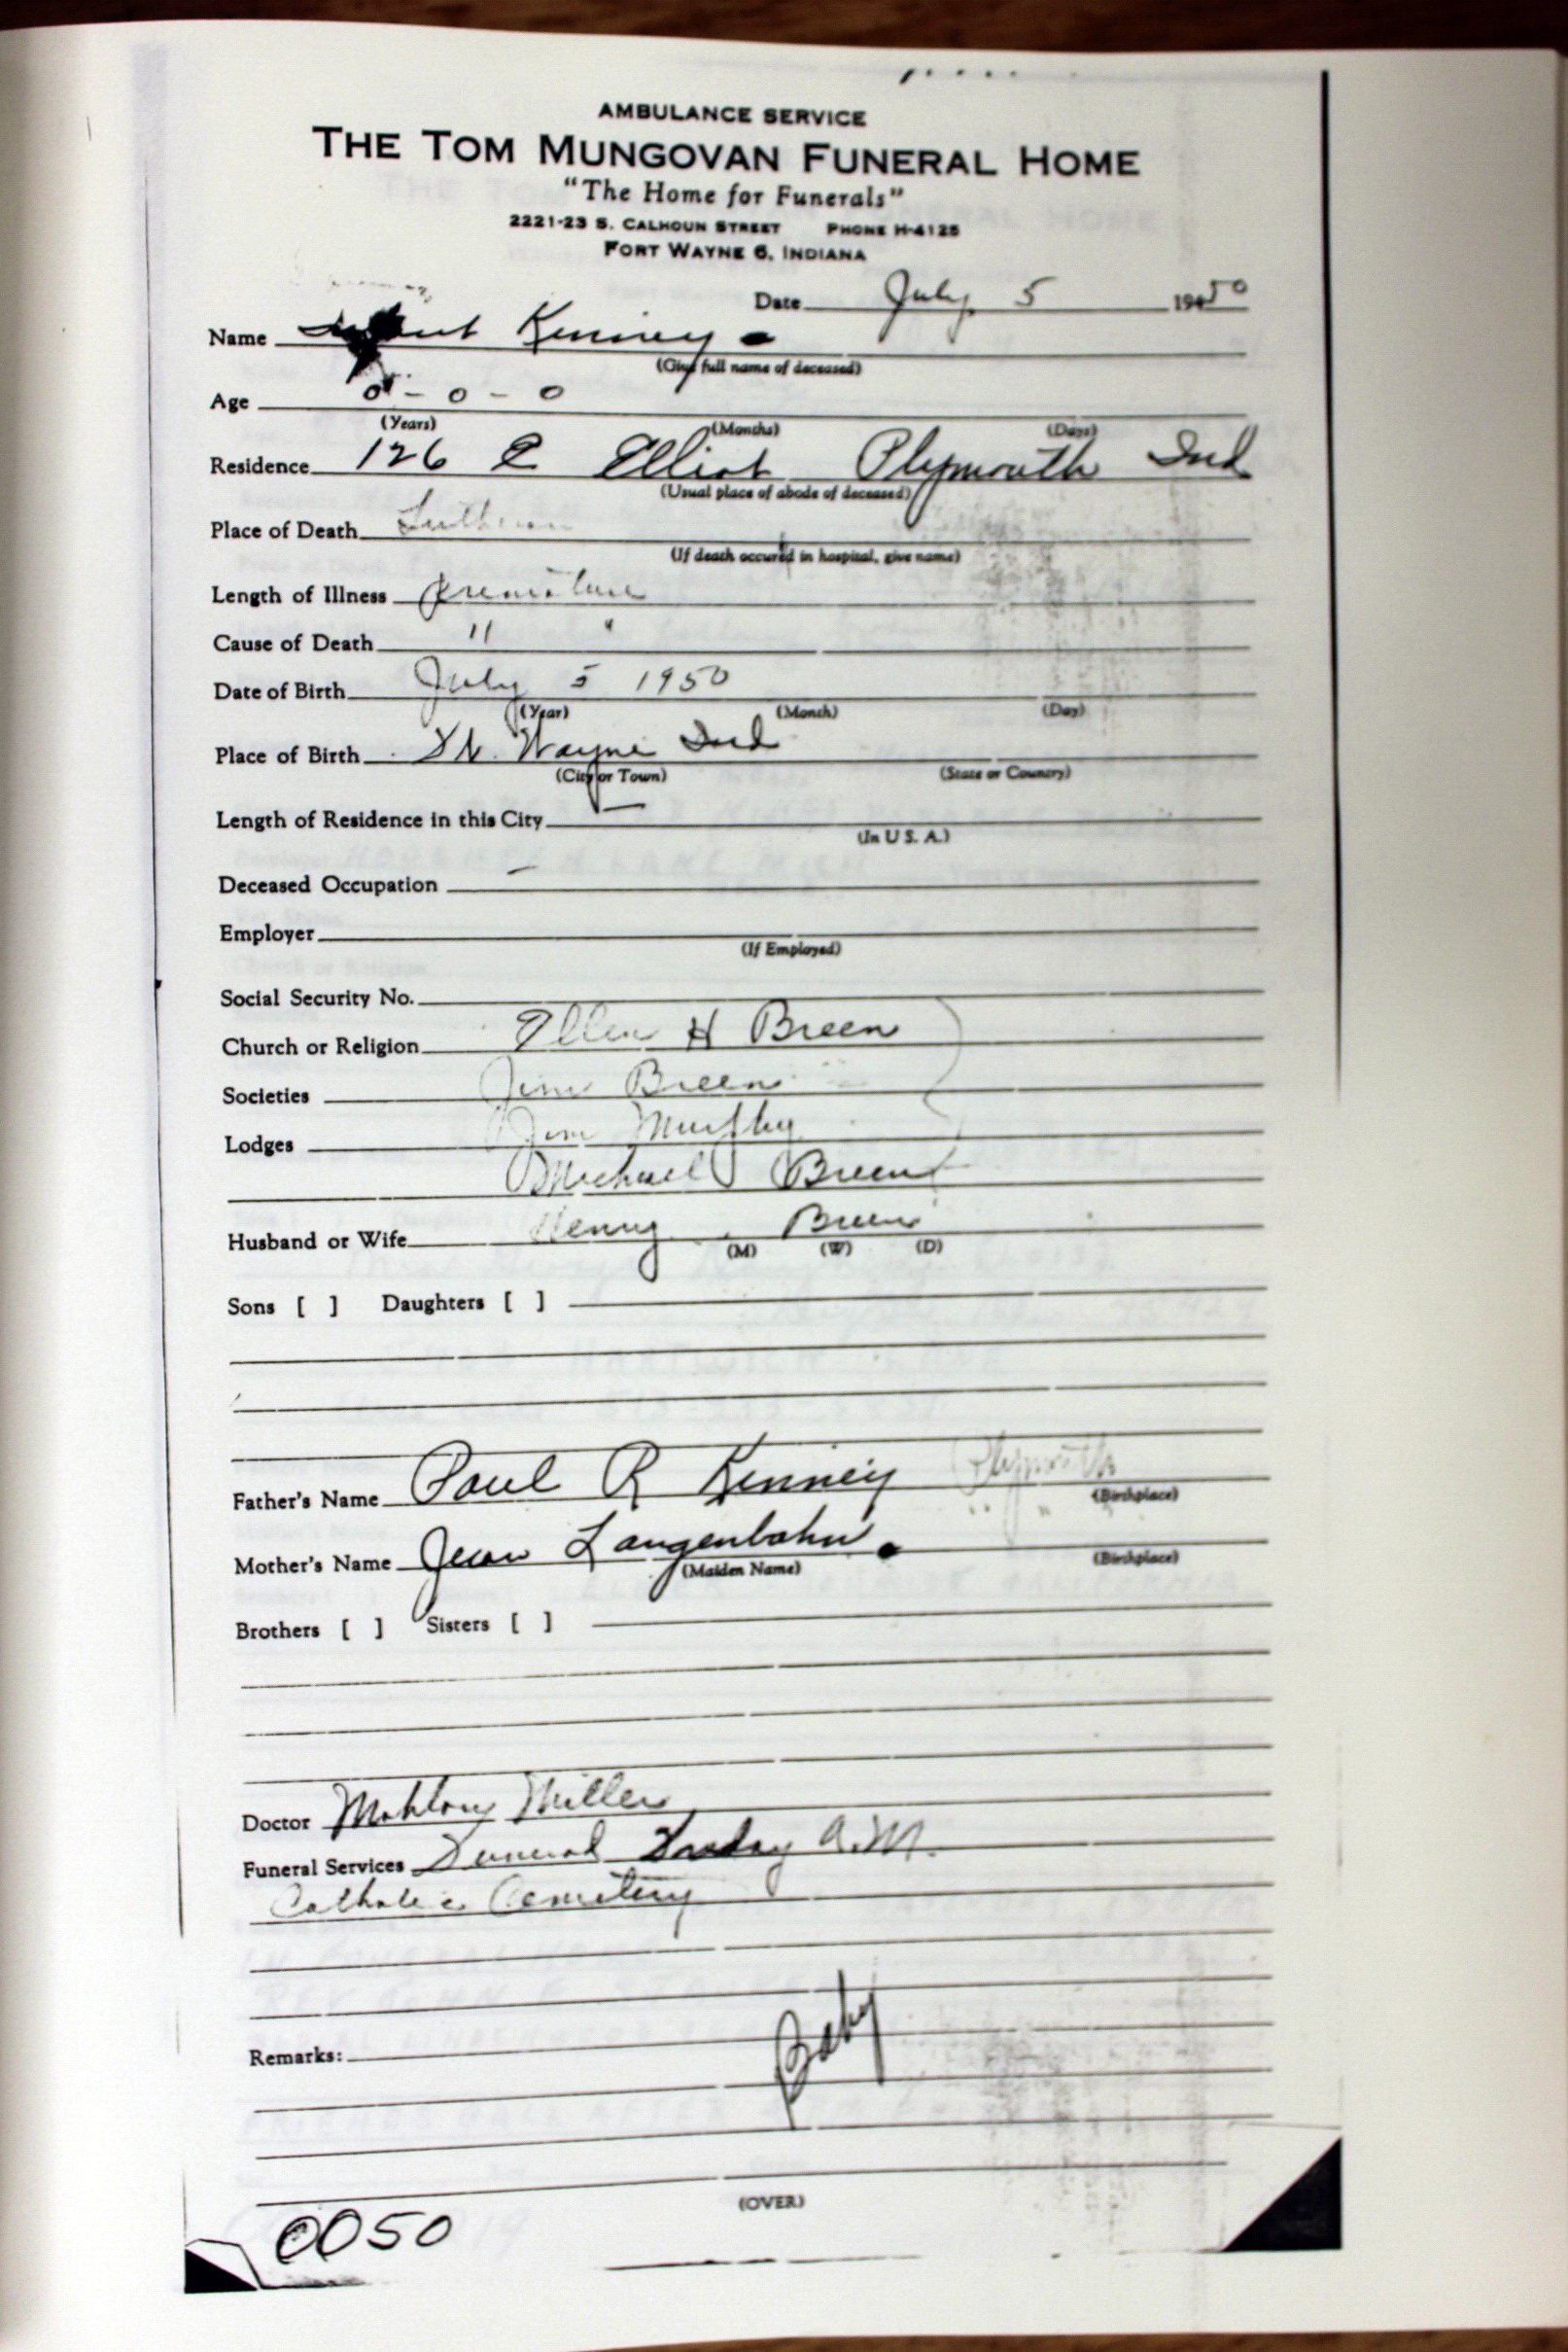 AMBULANCE SERVICE
THE TOM MUNGOVAN FUNERAL HOME
"The Home for Funerals"
2221-23 S. CALHOUN STREET PHONE H-4125
FORT WAYNE 6, INDIANA
Date July 5 1950
Name Infant Kenney
(Give full name of deceased)
Age 0 - 0 - 0
(Years) (Months) (Days)
Residence 126 E Elliot Plymouth Ind
(Usual place of abode of deceased)
Place of Death Lutheran
(If death occured in hospital, give name)
Length of Illness Premature
Cause of Death " "
Date of Birth July 5 1950
(Year) (Month) (Day)
Place of Birth Ft. Wayne Ind
(City or Town) (State or Country)
Length of Residence in this City —
(In U S. A.)
Deceased Occupation —
Employer
(If Employed)
Social Security No.
Church or Religion Ellen H Breen
Societies Jim Breen
Lodges Jim Murphy
Michael Breen
Husband or Wife Henry Breen
(M) (W) (D)
Sons [ ] Daughters [ ]
Father's Name Paul R Kenney Plymouth
(Birthplace)
Mother's Name Jean Langenbahn " "
(Maiden Name) (Birthplace)
Brothers [ ] Sisters [ ]
Doctor Mahlon Miller
Funeral Services Funeral Friday A.M.
Catholic Cemetery
Baby
Remarks:
(OVER)
0050